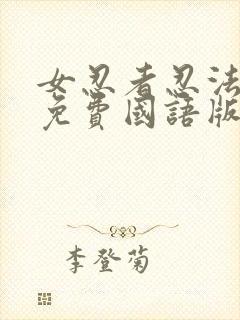 女忍者忍法
免費國語版
李登菊